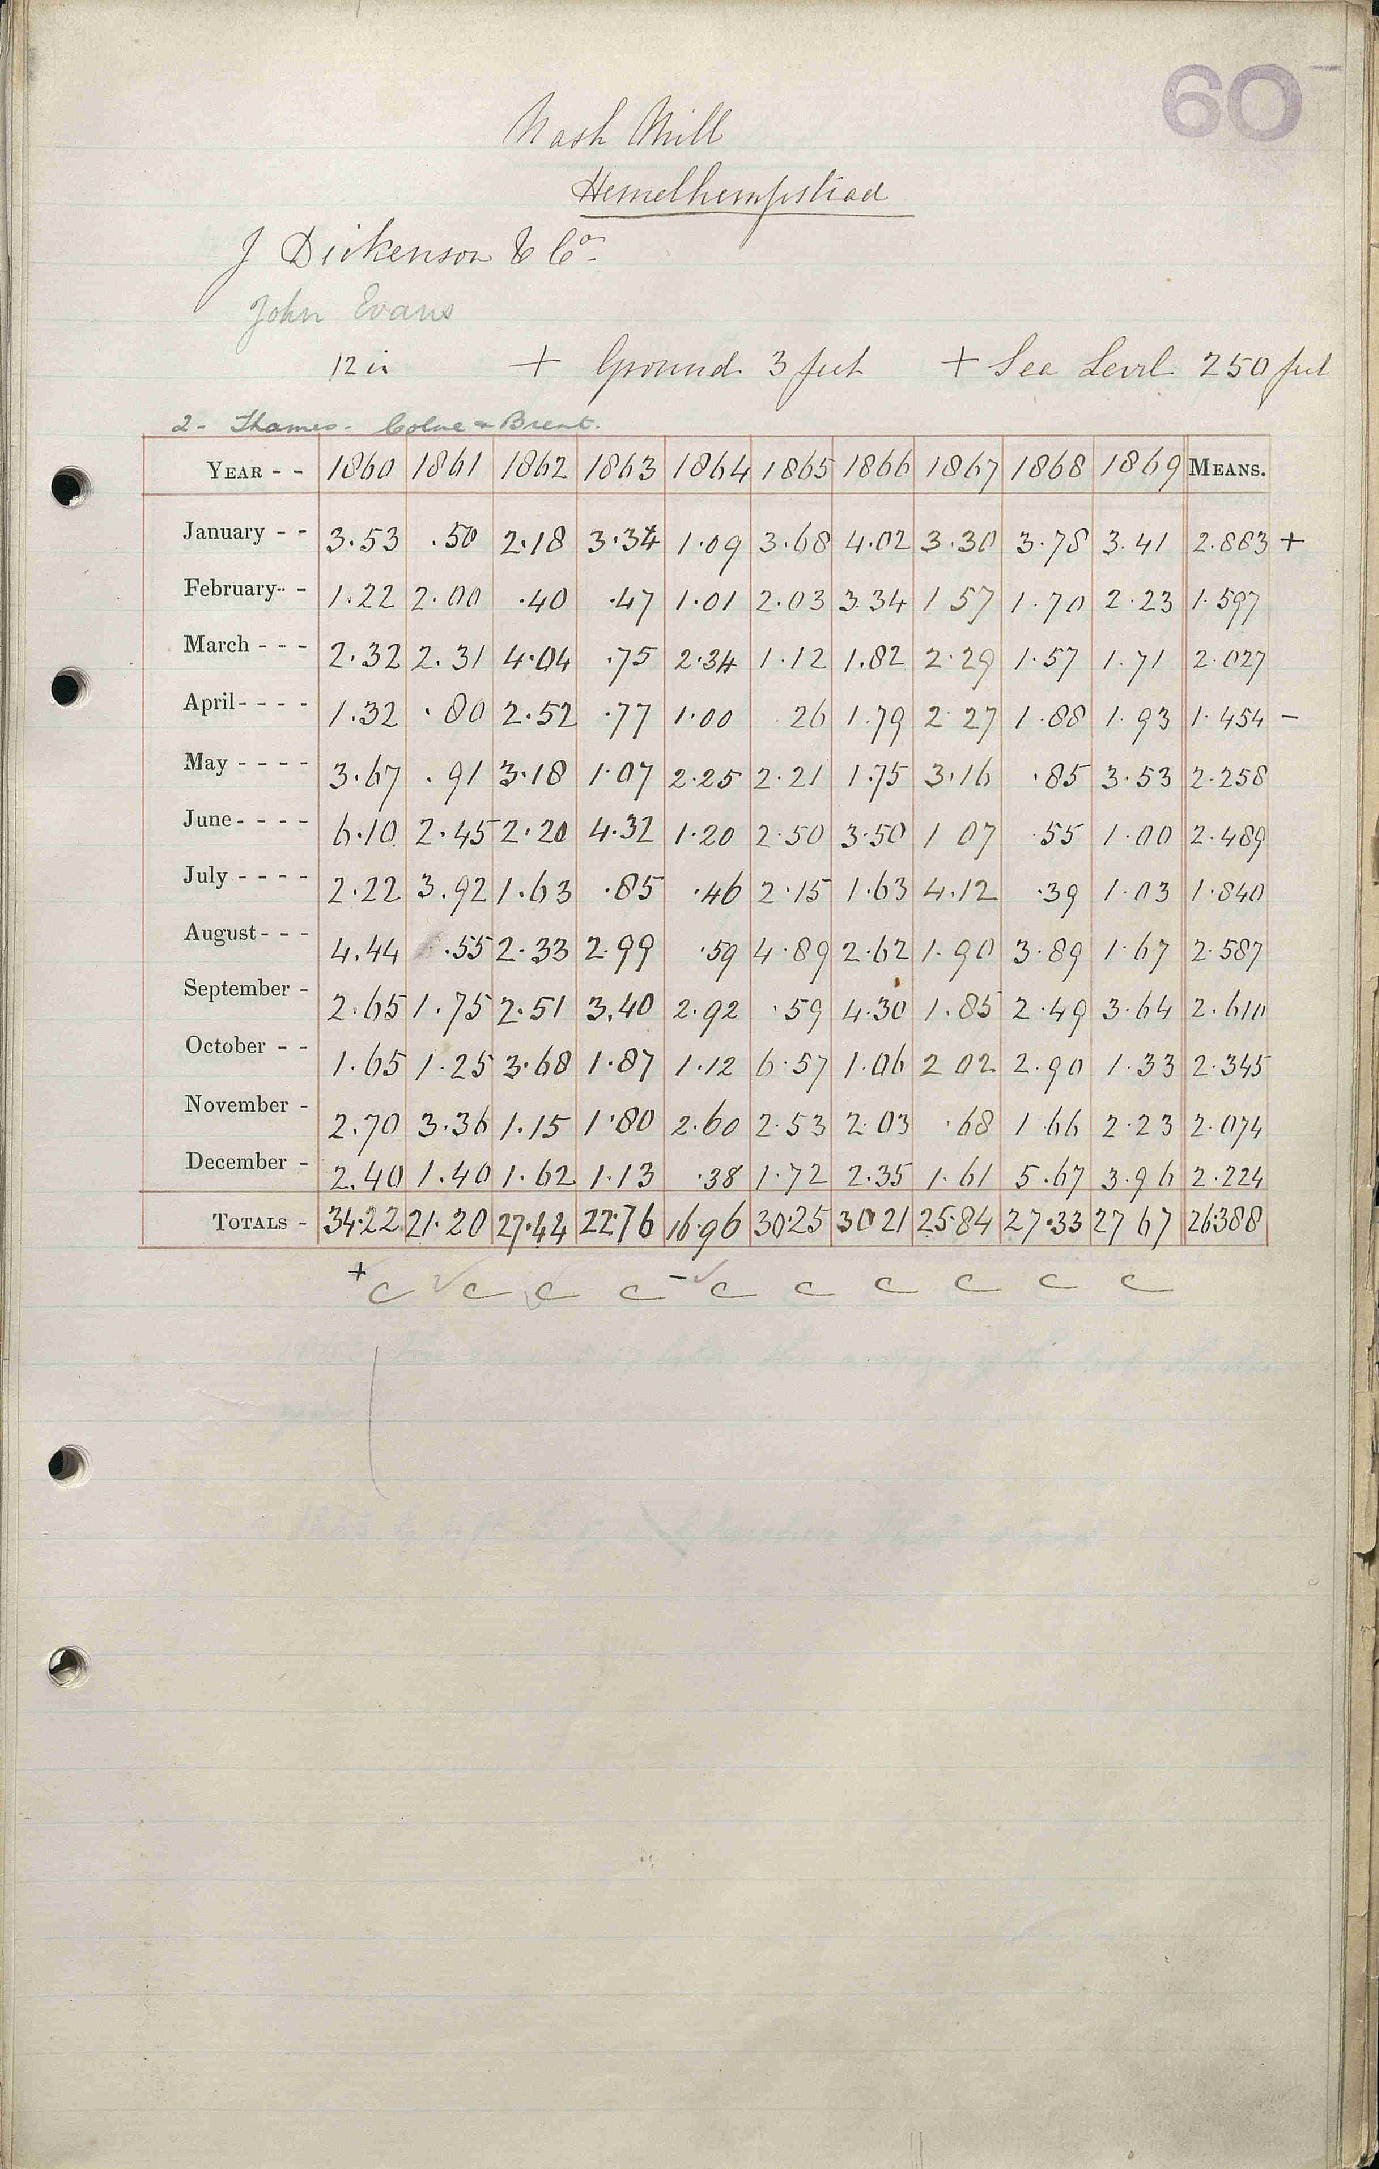 60
Nash Mill
Hemelhempstead
J Dickenson & Co.
John Evans
12 in + Ground 3 feet + Sea Level 250 feet
2 - Thames - Colne & Brent.
YEAR - - 1860 1861 1862 1863 1864 1865 1866 1867 1868 1869 MEANS.
January - - 3.53 .50 2.18 3.34 1.09 3.68 4.02 3.30 3.78 3.41 2.883 +
February - - 1.22 2.00 .40 .47 1.01 2.03 3.34 1 57 1.70 2.23 1.597
March - - - 2.32 2.31 4.04 .75 2.34 1.12 1.82 2.29 1.57 1.71 2.027
April - - - - 1.32 .80 2.52 .77 1.00 26 1.79 2 27 1.88 1.93 1.454 -
May - - - - 3.67 .91 3.18 1.07 2.25 2.21 1.75 3.16 .85 3.53 2.258
June - - - - 6.10 2.45 2.20 4.32 1.20 2.50 3.50 1 07 .55 1.00 2.489
July - - - - 2.22 3.92 1.63 .85 .46 2.15 1.63 4.12 .39 1.03 1.840
August - - - 4.44 .55 2.33 2.99 .59 4.89 2.62 1.90 3.89 1.67 2.587
September - 2.65 1.75 2.51 3.40 2.92 .59 4.30 1.85 2.49 3.64 2.610
October - - 1.65 1.25 3.68 1.87 1.12 6.57 1.06 2 02 2.90 1.33 2.345
November - 2.70 3.36 1.15 1.80 2.60 2.53 2.03 .68 1.66 2.23 2.074
December - 2.40 1.40 1.62 1.13 .38 1.72 2.35 1.61 5.67 3.96 2.224
TOTALS - 34.22 21.20 27.42 22.76 16.96 30.25 30 21 25.84 27.33 27 67 26388
+ c c c c - c c c c c c